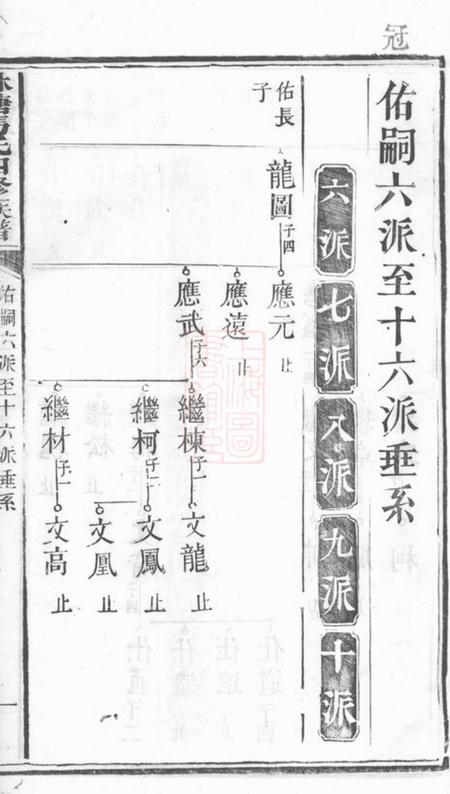 冠
佑嗣六派至十六派垂系
六派
七派
八派
九派
十派
佑長子
龍圖 子四
應元 止
應遠 止
應武 子六
繼棟 子一
文龍 止
繼柯 子二
文鳳 止
文凰 止
繼材 子一
文高 止
氏四修族譜
佑嗣六派至十六派垂系
一